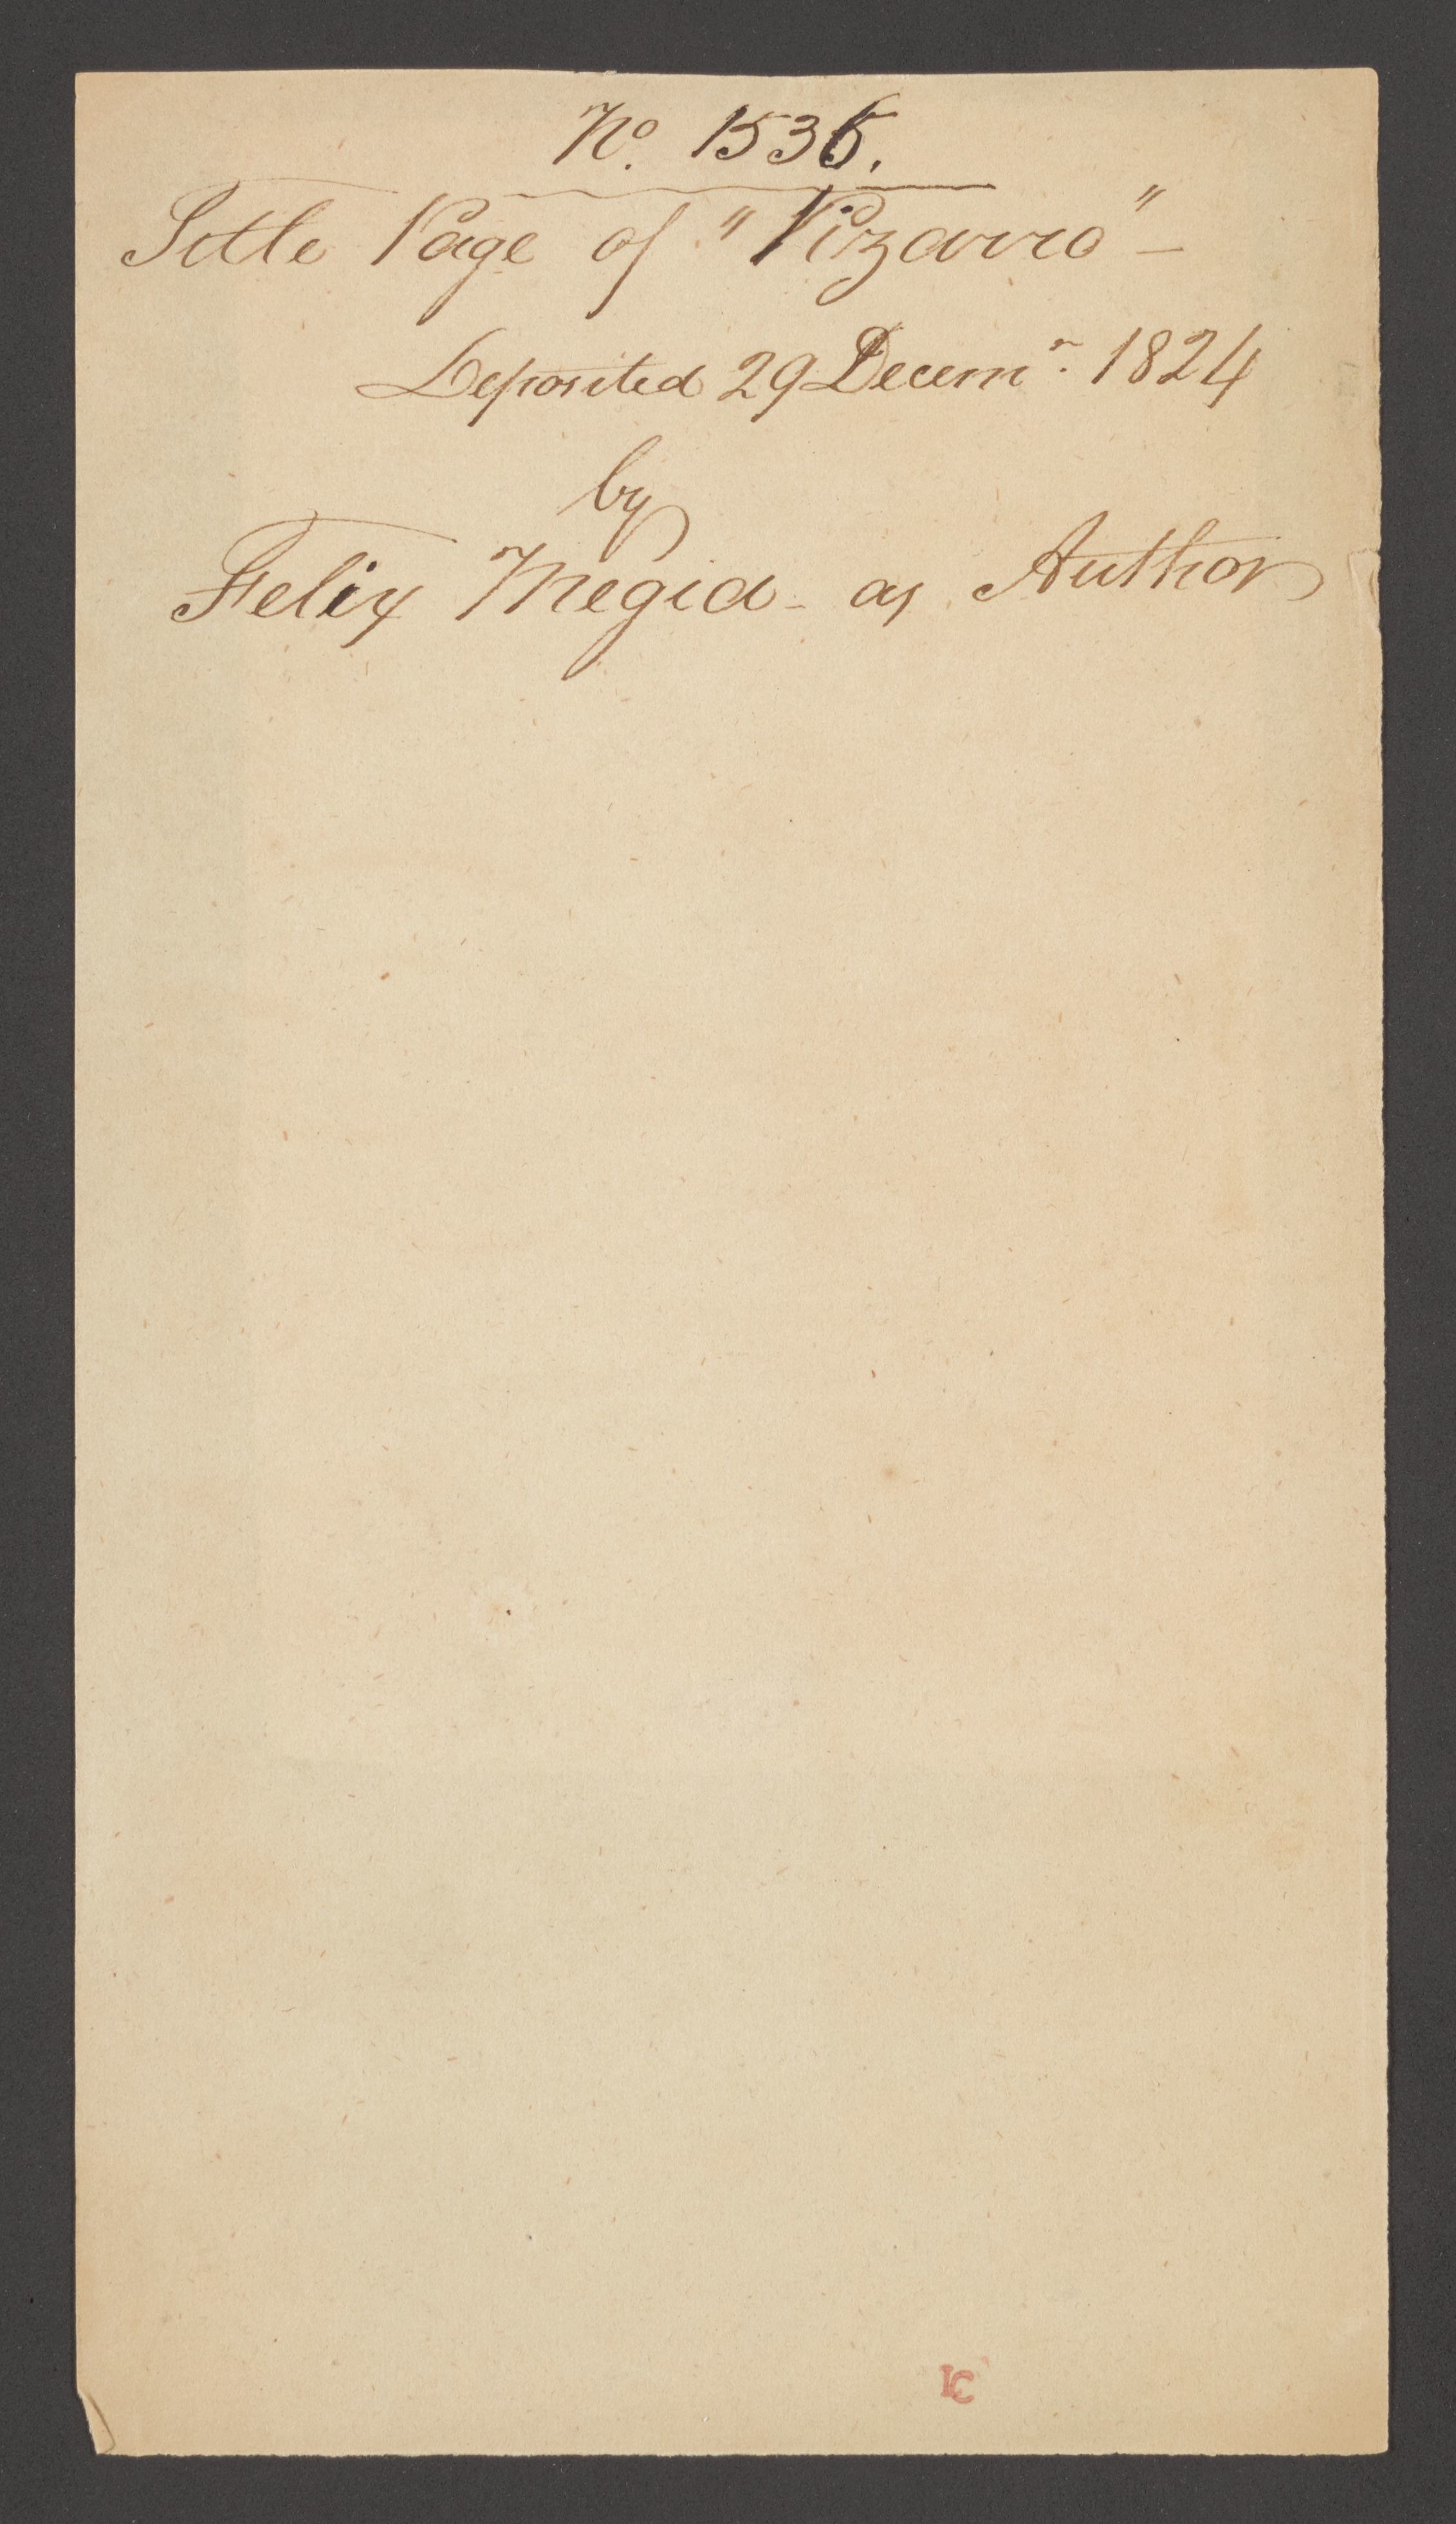 No. 1536.
Title Page of "Pizarro" —
Deposited 29 Decemr. 1824
by
Felix Megia - as Author
LC